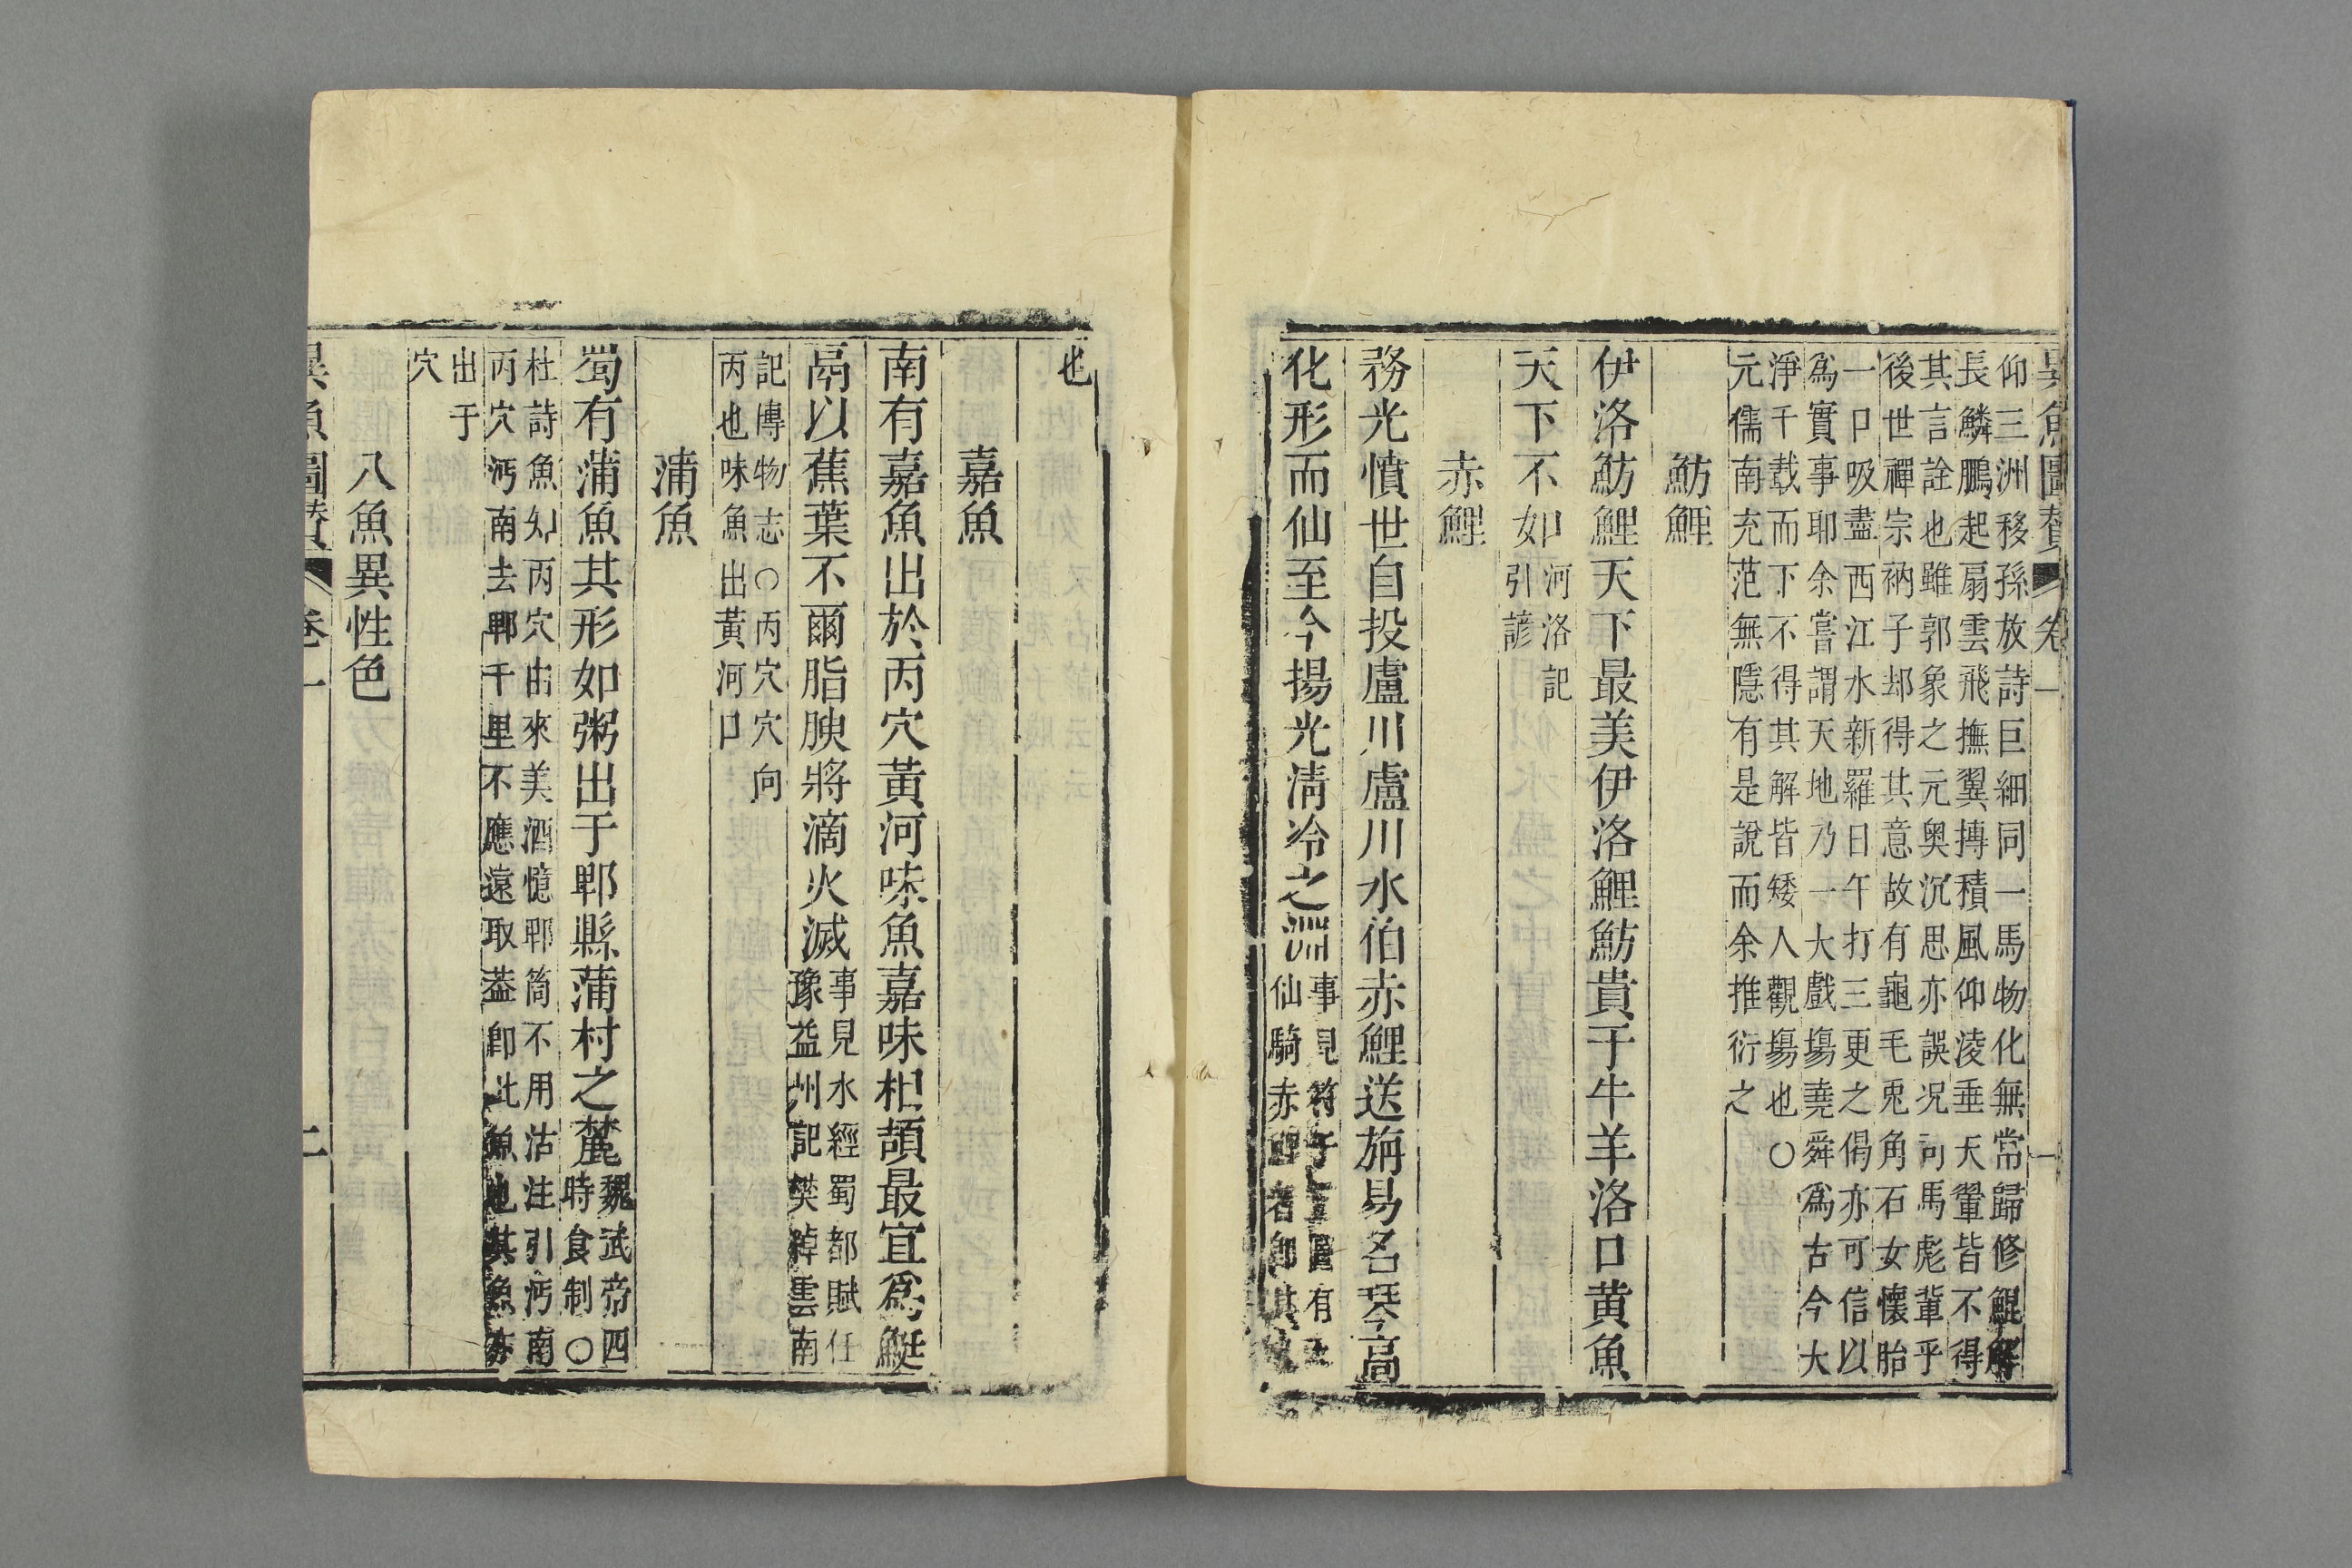 異魚圖賛 卷一 一
仰三洲移孫放詩巨細同一馬物化無常歸修鯤解
長鱗鵬起扇雲飛撫翼摶積風仰淩垂天翬皆不得
其言詮也雖郭象之元奥沉思亦誤况司馬彪軰乎
後世禪宗衲子却得其意故有龜毛兎角石女懷胎
一口吸盡西江水新羅日午打三更之偈亦可信以
為實事耶余嘗謂天地乃一大戲塲堯舜為古今大
淨千載而下不得其解皆矮人觀塲也○
元儒南充范無隱有是說而余推衍之
魴鯉
伊洛魴鯉天下最美伊洛鯉魴貴于牛羊洛口黄魚
天下不如
河洛記
引諺
赤鯉
務光憤世自投盧川盧川水伯赤鯉送旃易名琴高
化形而仙至今揚光清冷之淵
事見符子 有
仙騎赤鯉者即其
也
嘉魚
南有嘉魚出於丙穴黃河味魚嘉味相頡最宜為䱓
鬲以蕉葉不爾脂腴將滴火滅
事見水經蜀都賦任
豫益州記樊綽雲南
記博物志○丙穴穴向
丙也味魚出黃河口
蒲魚
蜀有蒲魚其形如粥出于郫縣蒲村之麓
魏武帝四
時食制○
杜詩魚知丙穴由來美酒憶郫筒不用沽注引沔南
丙穴沔南去郫千里不應遠取葢卽此魚也其魚亦
出于
穴
八魚異性色
異魚圖賛 卷一 二